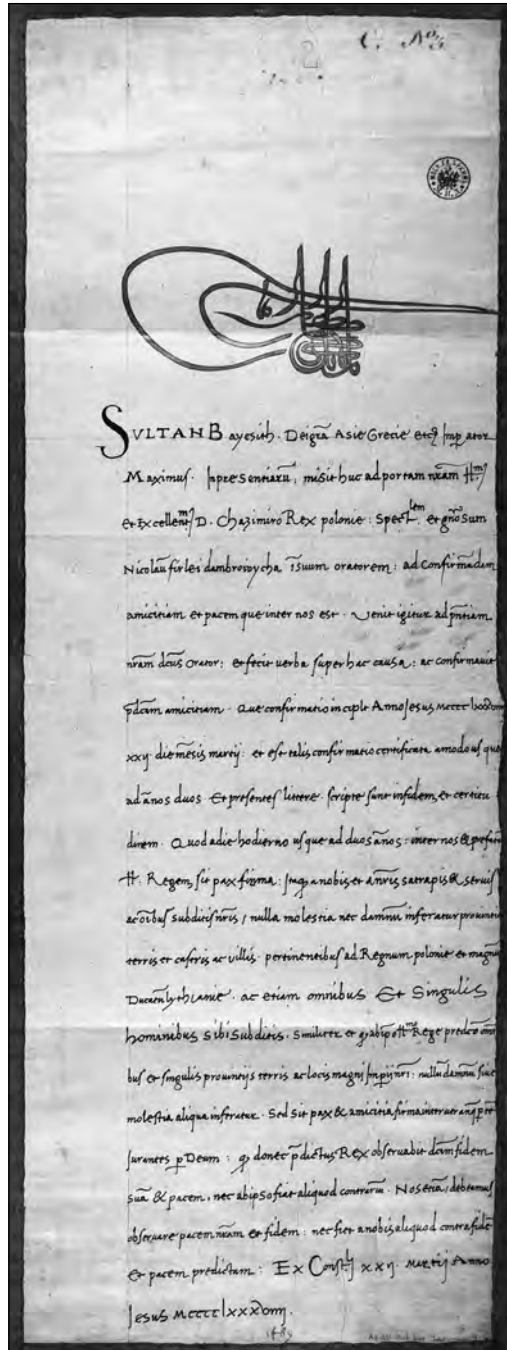 C. No
SVLTAN Bayesith. Dei gr̄a Asie Grecie etc Imp ator
Maximus. Inpresentiarū, misit huc ad portam nr̄am
et Excellentm D. Chazimirō Rex polonie: Spectlem et gn̄osum
Nicolaū firlei dambrowycha suum oratorem: ad Confirm̄adam
amicitiam et pacem que inter nos est. Venit igitur ad pn̄tiam
nr̄am dc̄us orator: et fecit uerba super hac causa: ac confirmauit
pd̄cam amicitiam. Que confirmatio incipit Anno Jesus
xxij die mēsis martij: et est talis confirmatio certificata amodo usque
ad an̄os duos. Et presentes littere scripte sunt in fidem, et certitu
dinem. Quod a die hodierno usque ad duos an̄os: inter nos & prefatū
H. Regem, sit pax firma: Itaq a nobis et a nr̄is satrapis & seruis
ac oībus subditis nr̄is, nulla molestia nec damnū inferatur prouintijs
terris et castris ac villis pertinentibus ad Regnum polonie et magnū
Ducatū lythuanie. ac etiam omnibus Et Singulis
hominibus sibi Subditis. Similiter et ab ipō Rege predc̄o omi
bus et singulis prouintijs terris ac locis magni Imperij nr̄i: nullū damnū siue
molestia aliqua inferatur. Sed Sit pax & amicitia firma inter utranq
Iurantes p Deum: donec p̄dictus Rex obseruabit dc̄am fidem
suā & pacem, nec ab ipso fiat aliquod contrariū. Nos etiā, debeamus
obseruare pacem nr̄am et fidem: nec fiet a nobis aliquod contra fidē
et pacem predictam: Ex Constlj xxij. Martij Anno
Jesus
1489